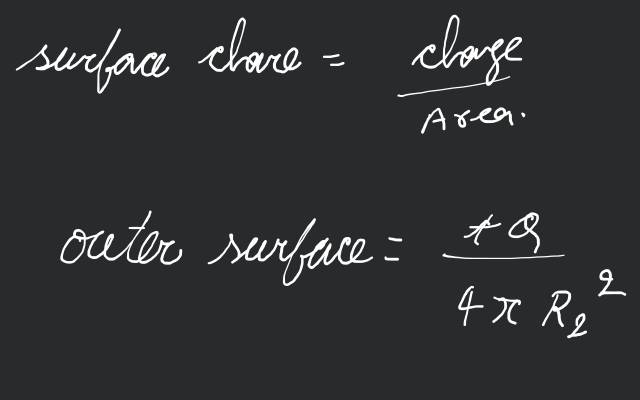 surface chare = charge / Area.
outer surface = +Q / 4π R₂²